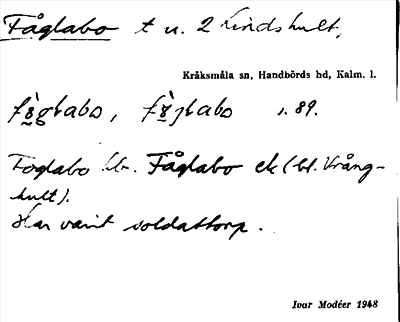 Fåglabo t u. 2 Lindshult,
Kråksmåla sn, Handbörds hd, Kalm. l.
s. 89.
Foglabo hb. Fåglabo ek (bl. Vrång-
hult).
Har varit soldattorp.
Ivar Modéer 1948